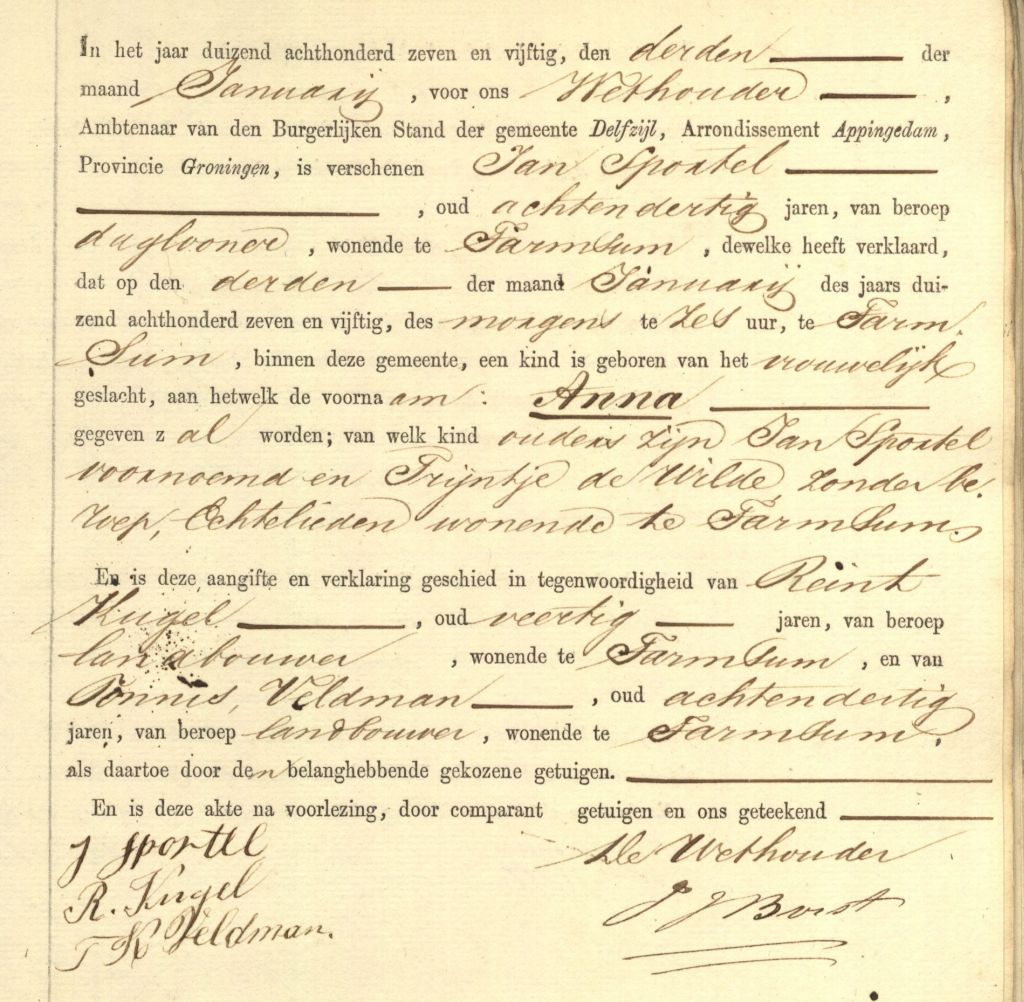 In het jaar duizend achthonderd zeven en vijftig, den derden der
maand Januarij, voor ons Wethouder,
Ambtenaar van den Burgerlijken Stand der gemeente Delfzijl, Arrondissement Appingedam,
Provincie Groningen, is verschenen Jan Sportel
, oud achtendertig jaren, van beroep
daglooner, wonende te Farmsum, dewelke heeft verklaard,
dat op den derden der maand Januarij des jaars dui-
zend achthonderd zeven en vijftig, des morgens te zes uur, te Farm.
Sum, binnen deze gemeente, een kind is geboren van het vrouwelijk
geslacht, aan hetwelk de voornaam: Anna
gegeven zal worden; van welk kind ouders zijn Jan Sportel
voornoemd en Trijntje de Wilde, zonder be.
roep, Echtelieden wonende te Farmsum.
En is deze aangifte en verklaring geschied in tegenwoordigheid van Reint
Kugel, oud veertig jaren, van beroep
landbouwer, wonende te Farmsum, en van
Tonnis, Veldman, oud achtendertig
jaren, van beroep landbouwer, wonende te Farmsum.
als daartoe door den belanghebbende gekozene getuigen.
En is deze akte na voorlezing, door comparant getuigen en ons geteekend
J Sportel De Wethouder
R. Kugel J. J Borst
T K Veldman.